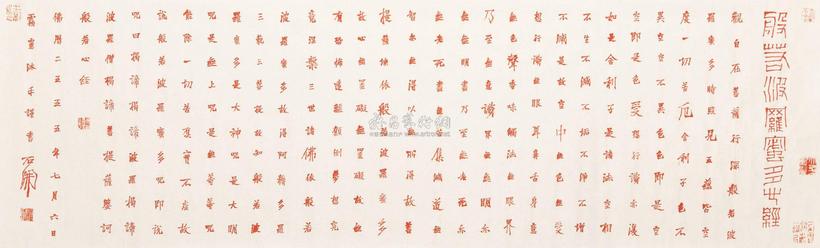 般若波羅蜜多心經
觀自在菩薩行深般若波
羅蜜多時照見五蘊皆空
度一切苦厄舍利子色不
異空空不異色色即是空
空即是色受想行識亦復
如是舍利子是諸法空相
不生不滅不垢不淨不增
不減是故空中無色無受
想行識無眼耳鼻舌身意
無色聲香味觸法無眼界
乃至無意識界無無明亦
無無明盡乃至無老死亦
無老死盡無苦集滅道無
智亦無得以無所得故菩
提薩埵依般若波羅蜜多
故心無罣礙無罣礙故無
有恐怖遠離顛倒夢想究
竟涅槃三世諸佛依般若
波羅蜜多故得阿耨多羅
三藐三菩提故知般若波
羅蜜多是大神呪是大明
呪是無上呪是無等等呪
能除一切苦真實不虛故
說般若波羅蜜多呪即說
呪曰揭諦揭諦波羅揭諦
波羅僧揭諦菩提薩婆訶
般若心經
佛曆二五五五年七月六日
霧靈沐手謹書